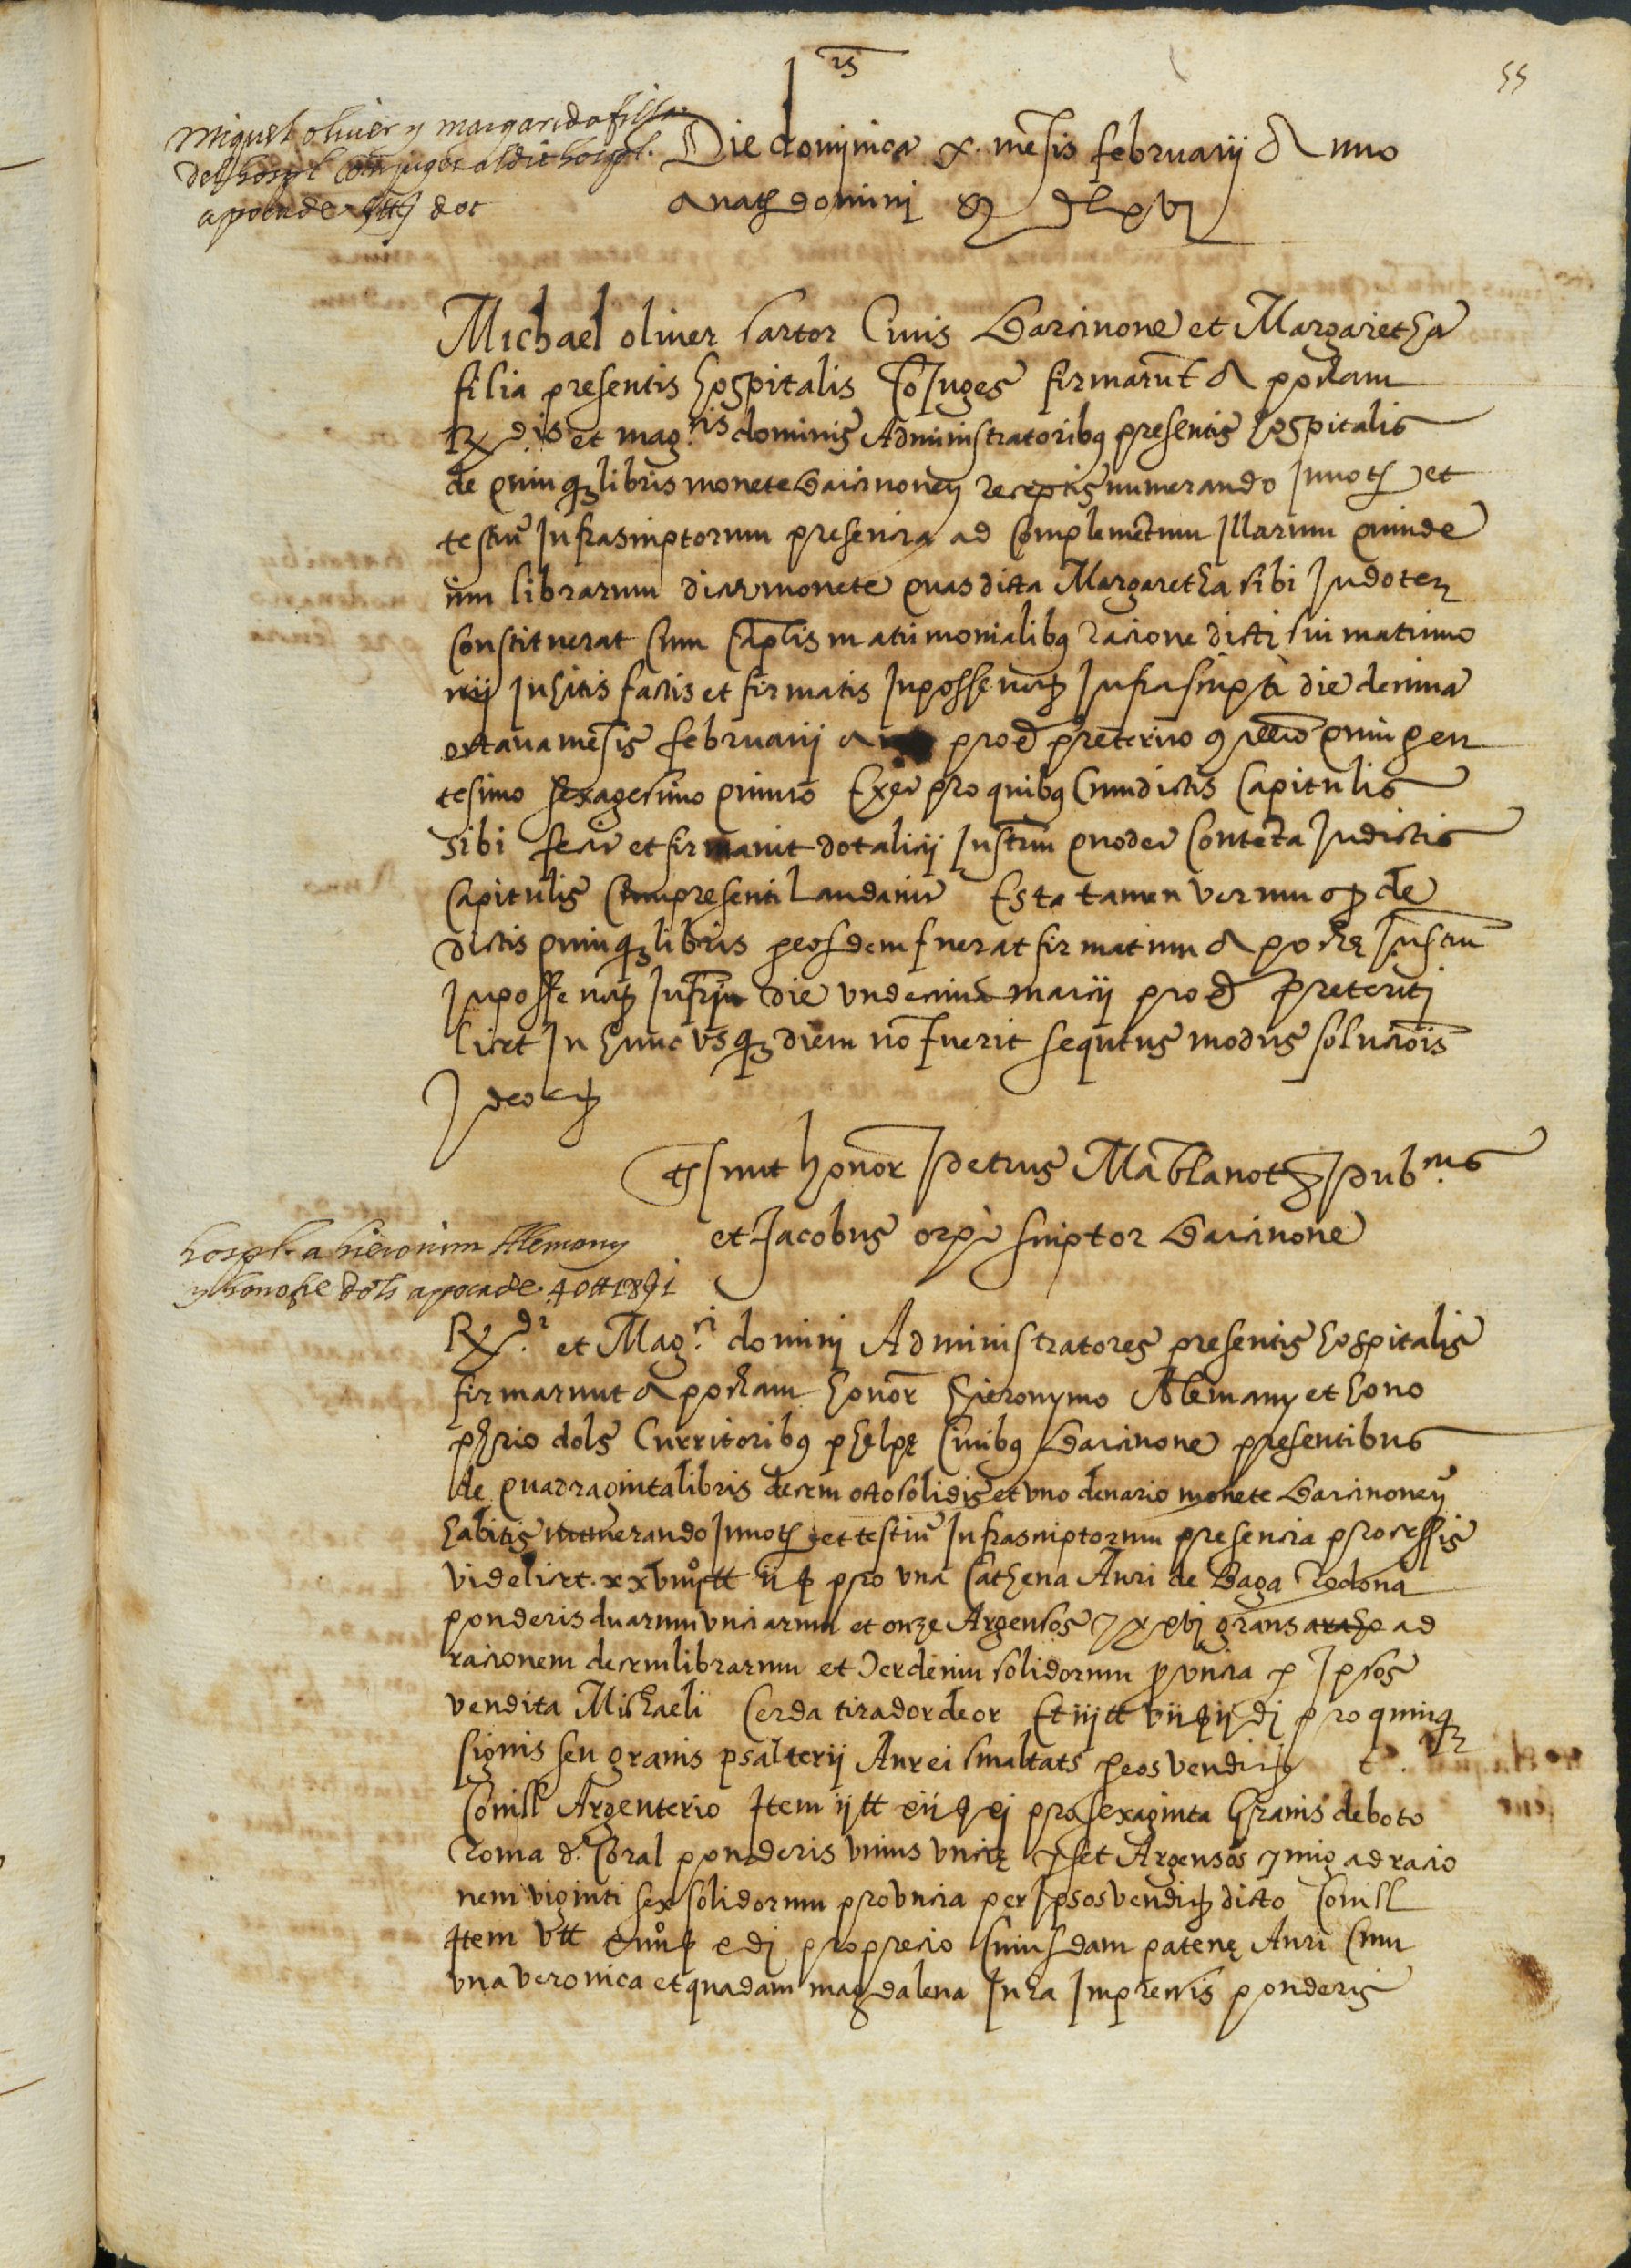 55
Miquel oliver y margarida filla
del hospl conjuges al dit hospl.
apoca de 5 ₶ dot
Die dominica x. mesis februarij Anno
a natᵗ domini M D Lxvj
Michael oliver sartor Civis Barcinone et Margaretha
filia presentis hospitalis Cojuges firmarut Apocham
Rx.dis et mag.cis dominis Administratoribꝫ presentis hospitalis
de quinqꝫ libris monete barcinoneñ receptis numerando In notj et
testiu Infrascriptorum presencia ad Complemetum Illarum quinde
cim librarum dicte monete quas dicta Margaretha sibi In dotem
Constituerat Cum Caplis matrimonialibꝫ racione dicti sui matrimo
nij Inhitis factis et firmatis In posse notj Infrascripti die decima
octava mesis februarij pro d preterito quingen
tesimo sexagesimo quinto Ex et pro quibꝫ Cum dictis Capitulis
sibi fecit et firmavit dotalicij Instrm quod et Conteta In dictis
Capitulis Cum presenti Laudavit Est tamen verum qͦ de
dictis quinqꝫ libris p eosdem fuerat firmatum Apoche Instru
In posse notj Infrij die undecima marcij pro d preteriti
licet In hunc usqꝫ diem no fuerit sequtus modus soluciois
Ideo etc
Ts sunt honor Petrus Mablanoth Pub.cus
et Jacobus orpi scriptor Barcinone
hospl. a hieronim Alemany
y honofre dols apoca de. 40₶ 18 s 1
Rx.di et Mag.ci domini Administratores presentis hospitalis
firmarunt Apocham honor hieronymo Alemany et hono
phrio dols Curritoribꝫ phelpe Civibꝫ Barcinone presentibus
de quadraginta libris decem octo solidis et uno denario monete Barcinoneñ
habitis numerando In notj et testiu Infrascriptorum presencia processis
videlicet. xxviiij ₶ ij s pro una Cathena Auri de Baga Rodona
ponderis duarum unciarum et onze Argensos y xxvj grans ad
racionem decem librarum et decemim solidorum p uncia p Ipsos
vendita Michaeli Cerda tirador de or Et iij ₶ vij s ij dj pro quinqꝫ
signis seu granis psalterij Aurei smaltats p eos vendit
Conill Argenterio Item ij ₶ xij s xj pro sexaginta Granis de boto
Roma d. Coral ponderis unius uncie y set Argensos y mig ad racio
nem viginti sex solidorum pro uncia per Ipsos vendit dicto Conill
Item v ₶ xvj s x dj pro precio Cuiusdam patene Auri Cum
una veronica et quadam magdalena In ea Impressis ponderis